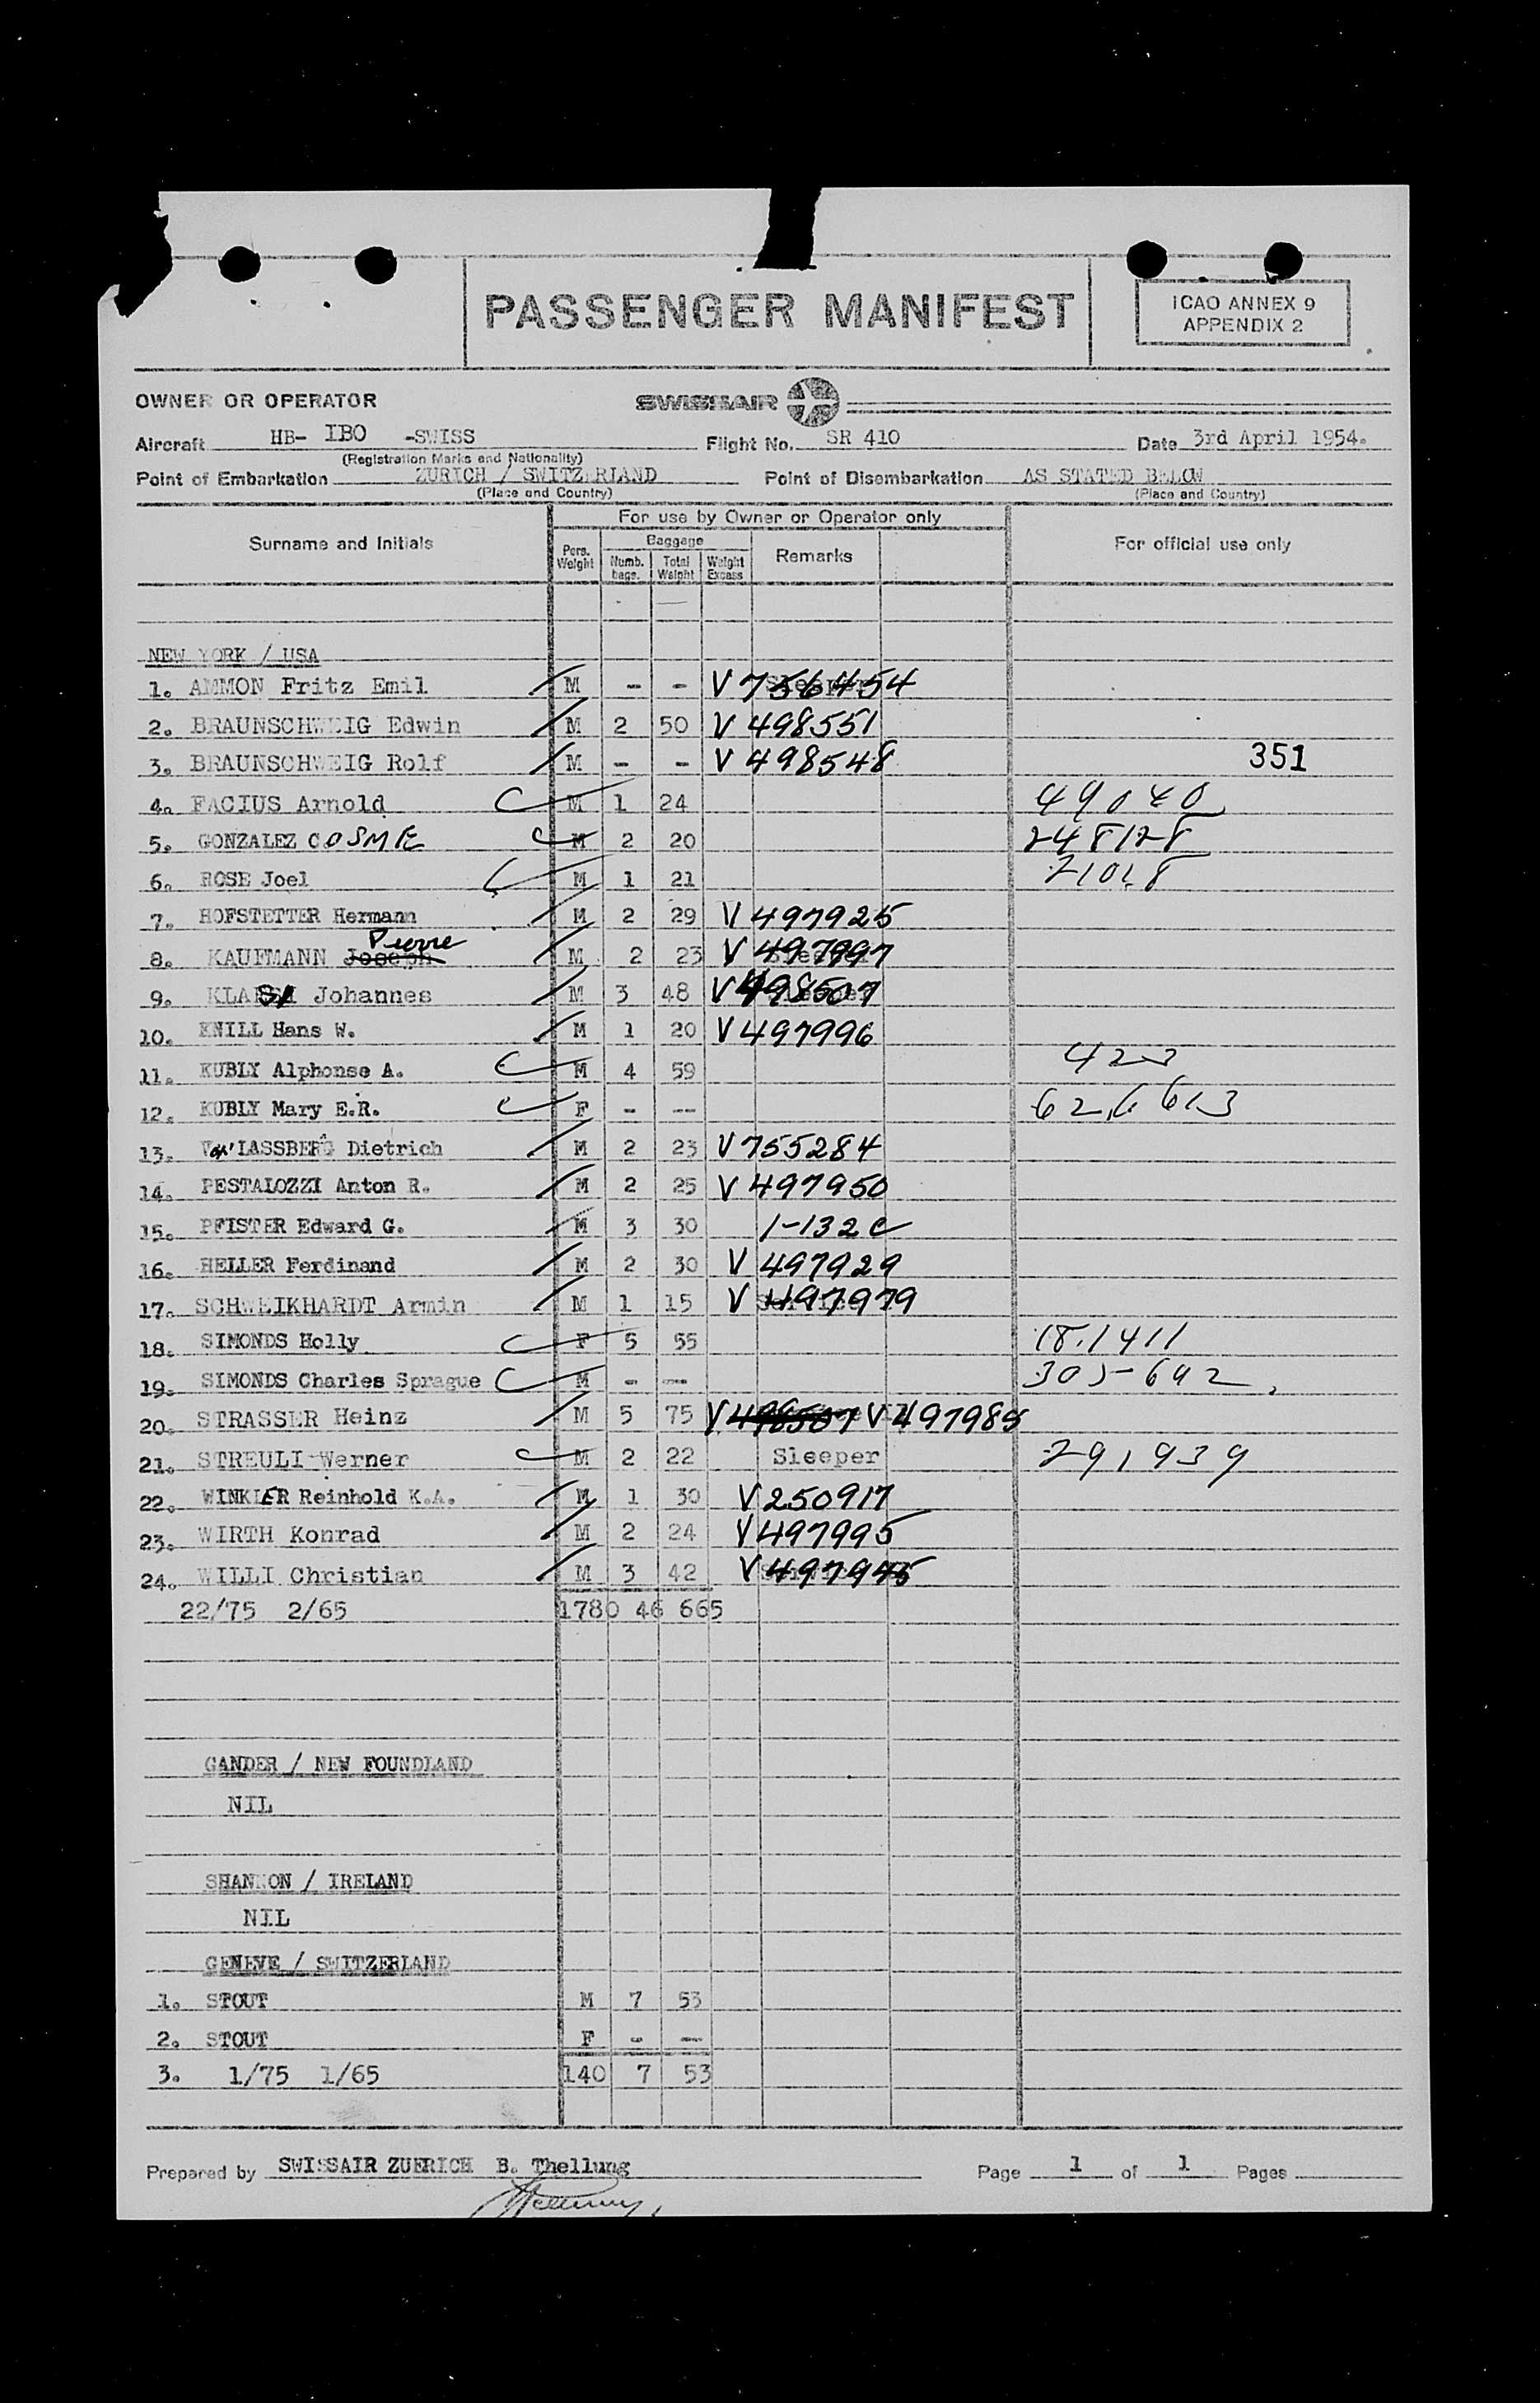 PASSENGER MANIFEST
ICAO ANNEX 9
APPENDIX 2
OWNER OR OPERATOR SWISSAIR
Aircraft HB- IBO -SWISS Flight No. SR 410 Date 3rd April 1954.
(Registration Marks and Nationality)
Point of Embarkation ZURICH / SWITZERLAND Point of Disembarkation AS STATED BELOW
(Place and Country) (Place and Country)
For use by Owner or Operator only
Surname and Initials Pers. Weight Baggage Numb. bags. Total Weight Weight Excess Remarks For official use only
NEW YORK / USA
1. AMMON Fritz Emil M - - V 756454
2. BRAUNSCHWEIG Edwin M 2 50 V 498551
3. BRAUNSCHWEIG Rolf M - - V 498548 351
4. FACIUS Arnold M 1 24
5. GONZALEZ COSME M 2 20 248128
6. ROSE Joel M 1 21
7. HOFSTETTER Hermann M 2 29 V 497925
8. KAUFMANN Joseph Pierre M 2 23 V 497997
9. Johannes M 3 48 V 498507
10. KNILL Hans W. M 1 20 V 497996
11. KUBLY Alphonse A. M 4 59
12. KUBLY Mary E.R. F - --
13. Von LASSBERG Dietrich M 2 23 V 755284
14. PESTALOZZI Anton R. M 2 25 V 497950
15. PFISTER Edward G. M 3 30 1-132 C
16. HELLER Ferdinand M 2 30 V 497929
17. SCHWEIKHARDT Armin M 1 15 V 497979
18. SIMONDS Holly F 5 55 18.1411
19. SIMONDS Charles Sprague M - --
20. STRASSER Heinz M 5 75 V 498507 V 497985
21. STREULI Werner M 2 22 Sleeper 291939
22. WINKLER Reinhold K.A. M 1 30 V 250917
23. WIRTH Konrad M 2 24 V 497995
24. WILLI Christian M 3 42 V 497945
22/75 2/65 1780 46 665
GANDER / NEW FOUNDLAND
NIL
SHANNON / IRELAND
NIL
GENEVE / SWITZERLAND
1. STOUT M 7 53
2. STOUT F - --
3. 1/75 1/65 140 7 53
Prepared by SWISSAIR ZUERICH B. Thellung Page 1 of 1 Pages